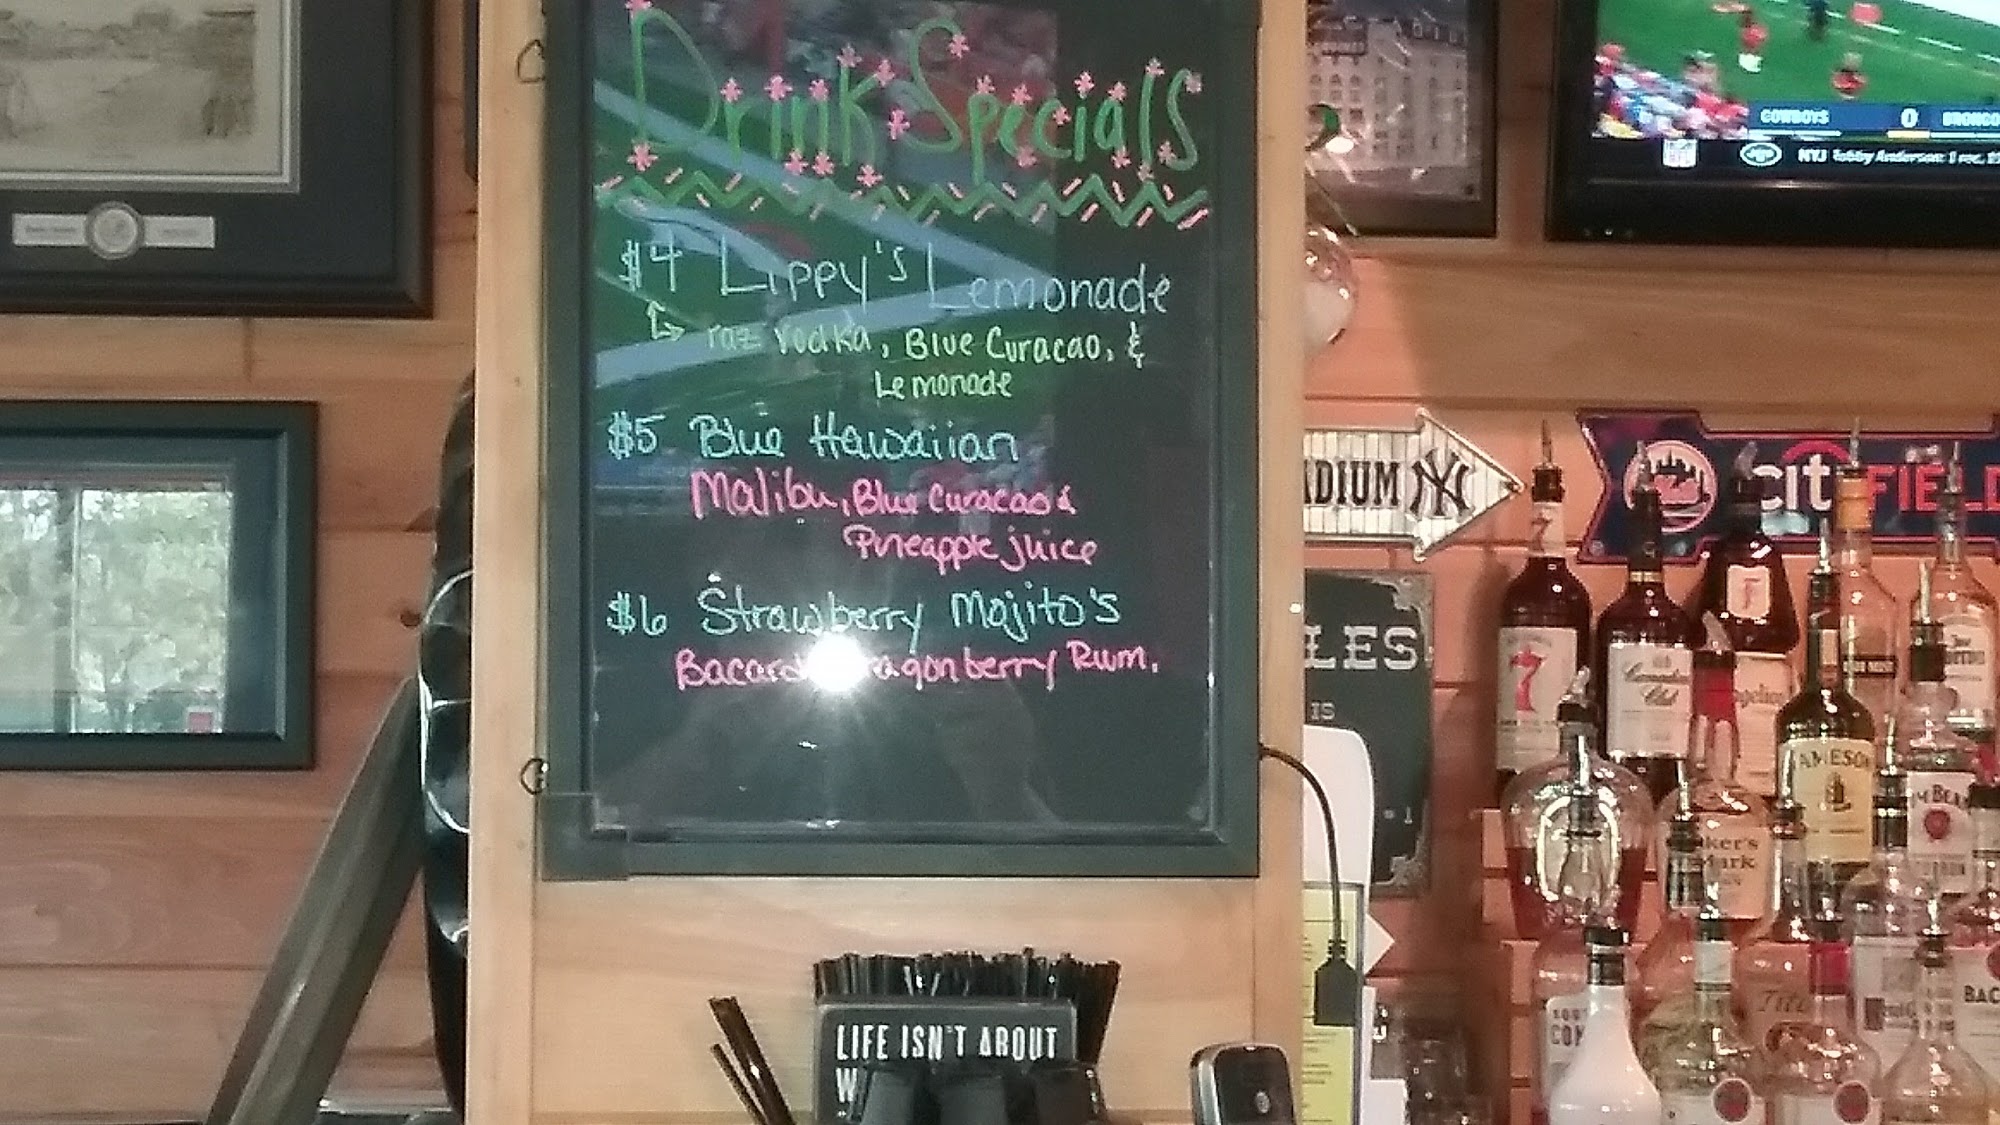 Drink Specials
$4 Lippy's Lemonade
raz vodka, Blue Curacao, &
Lemonade
$5 Blue Hawaiian
Malibu, Blue Curacao &
Pineapple juice
$6 Strawberry Mojito's
Bacardi Dragonberry Rum.
COWBOYS 0 BRONCO
NFL NYJ
ADIUM NY
citi FIELD
LES
IS
7
Canadian Club
JAMESO
BEA
Mark
BAC
LIFE ISN'T ABOUT
W